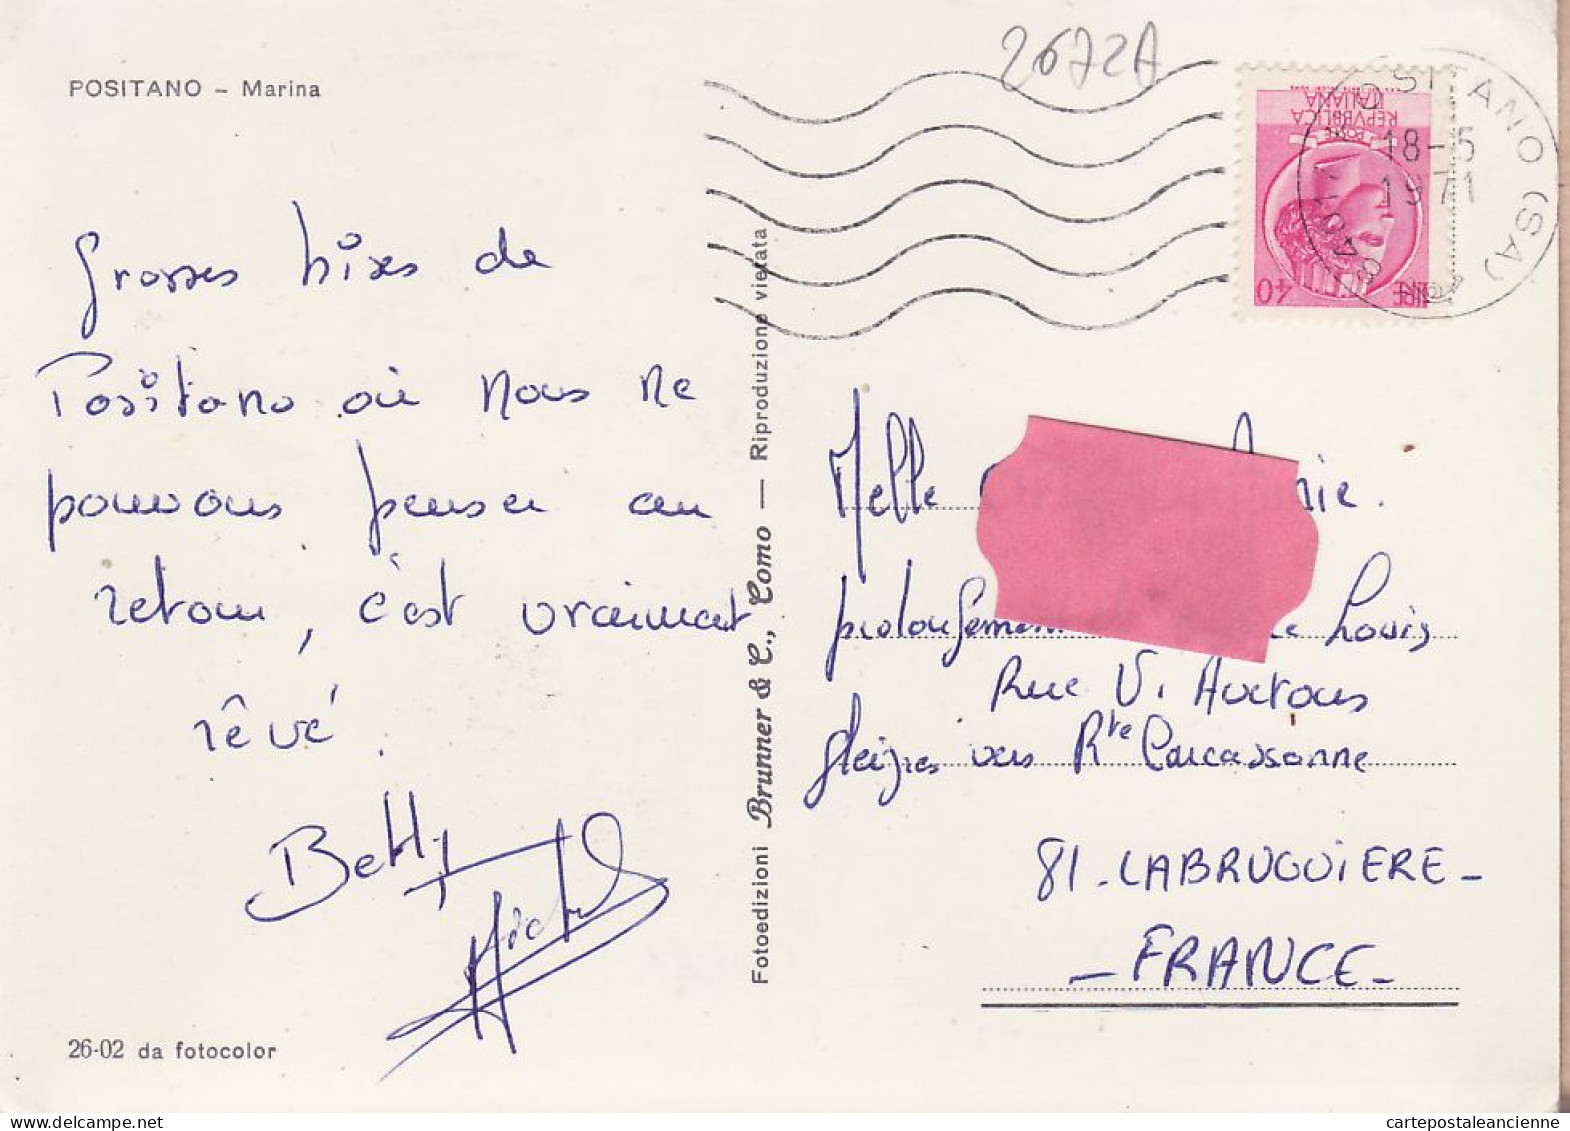 POSITANO – Marina
2672A
POSITANO (SA)
18-5
1971
REPVBBLICA
ITALIANA
POSTE
LIRE 40
Grosses bises de
Positano où nous ne
pouvons penser au
retour, c'est vraiment
rêvé.
Betty
Michel
26-02 da fotocolor
Fotoedizioni Brunner & C., Como — Riproduzione vietata
Melle
nie.
prolongement Louis
Rue V. Auctous
gleizes vers Rte Carcassonne
81 - LABRUGUIERE -
- FRANCE -
cartepostaleancienne